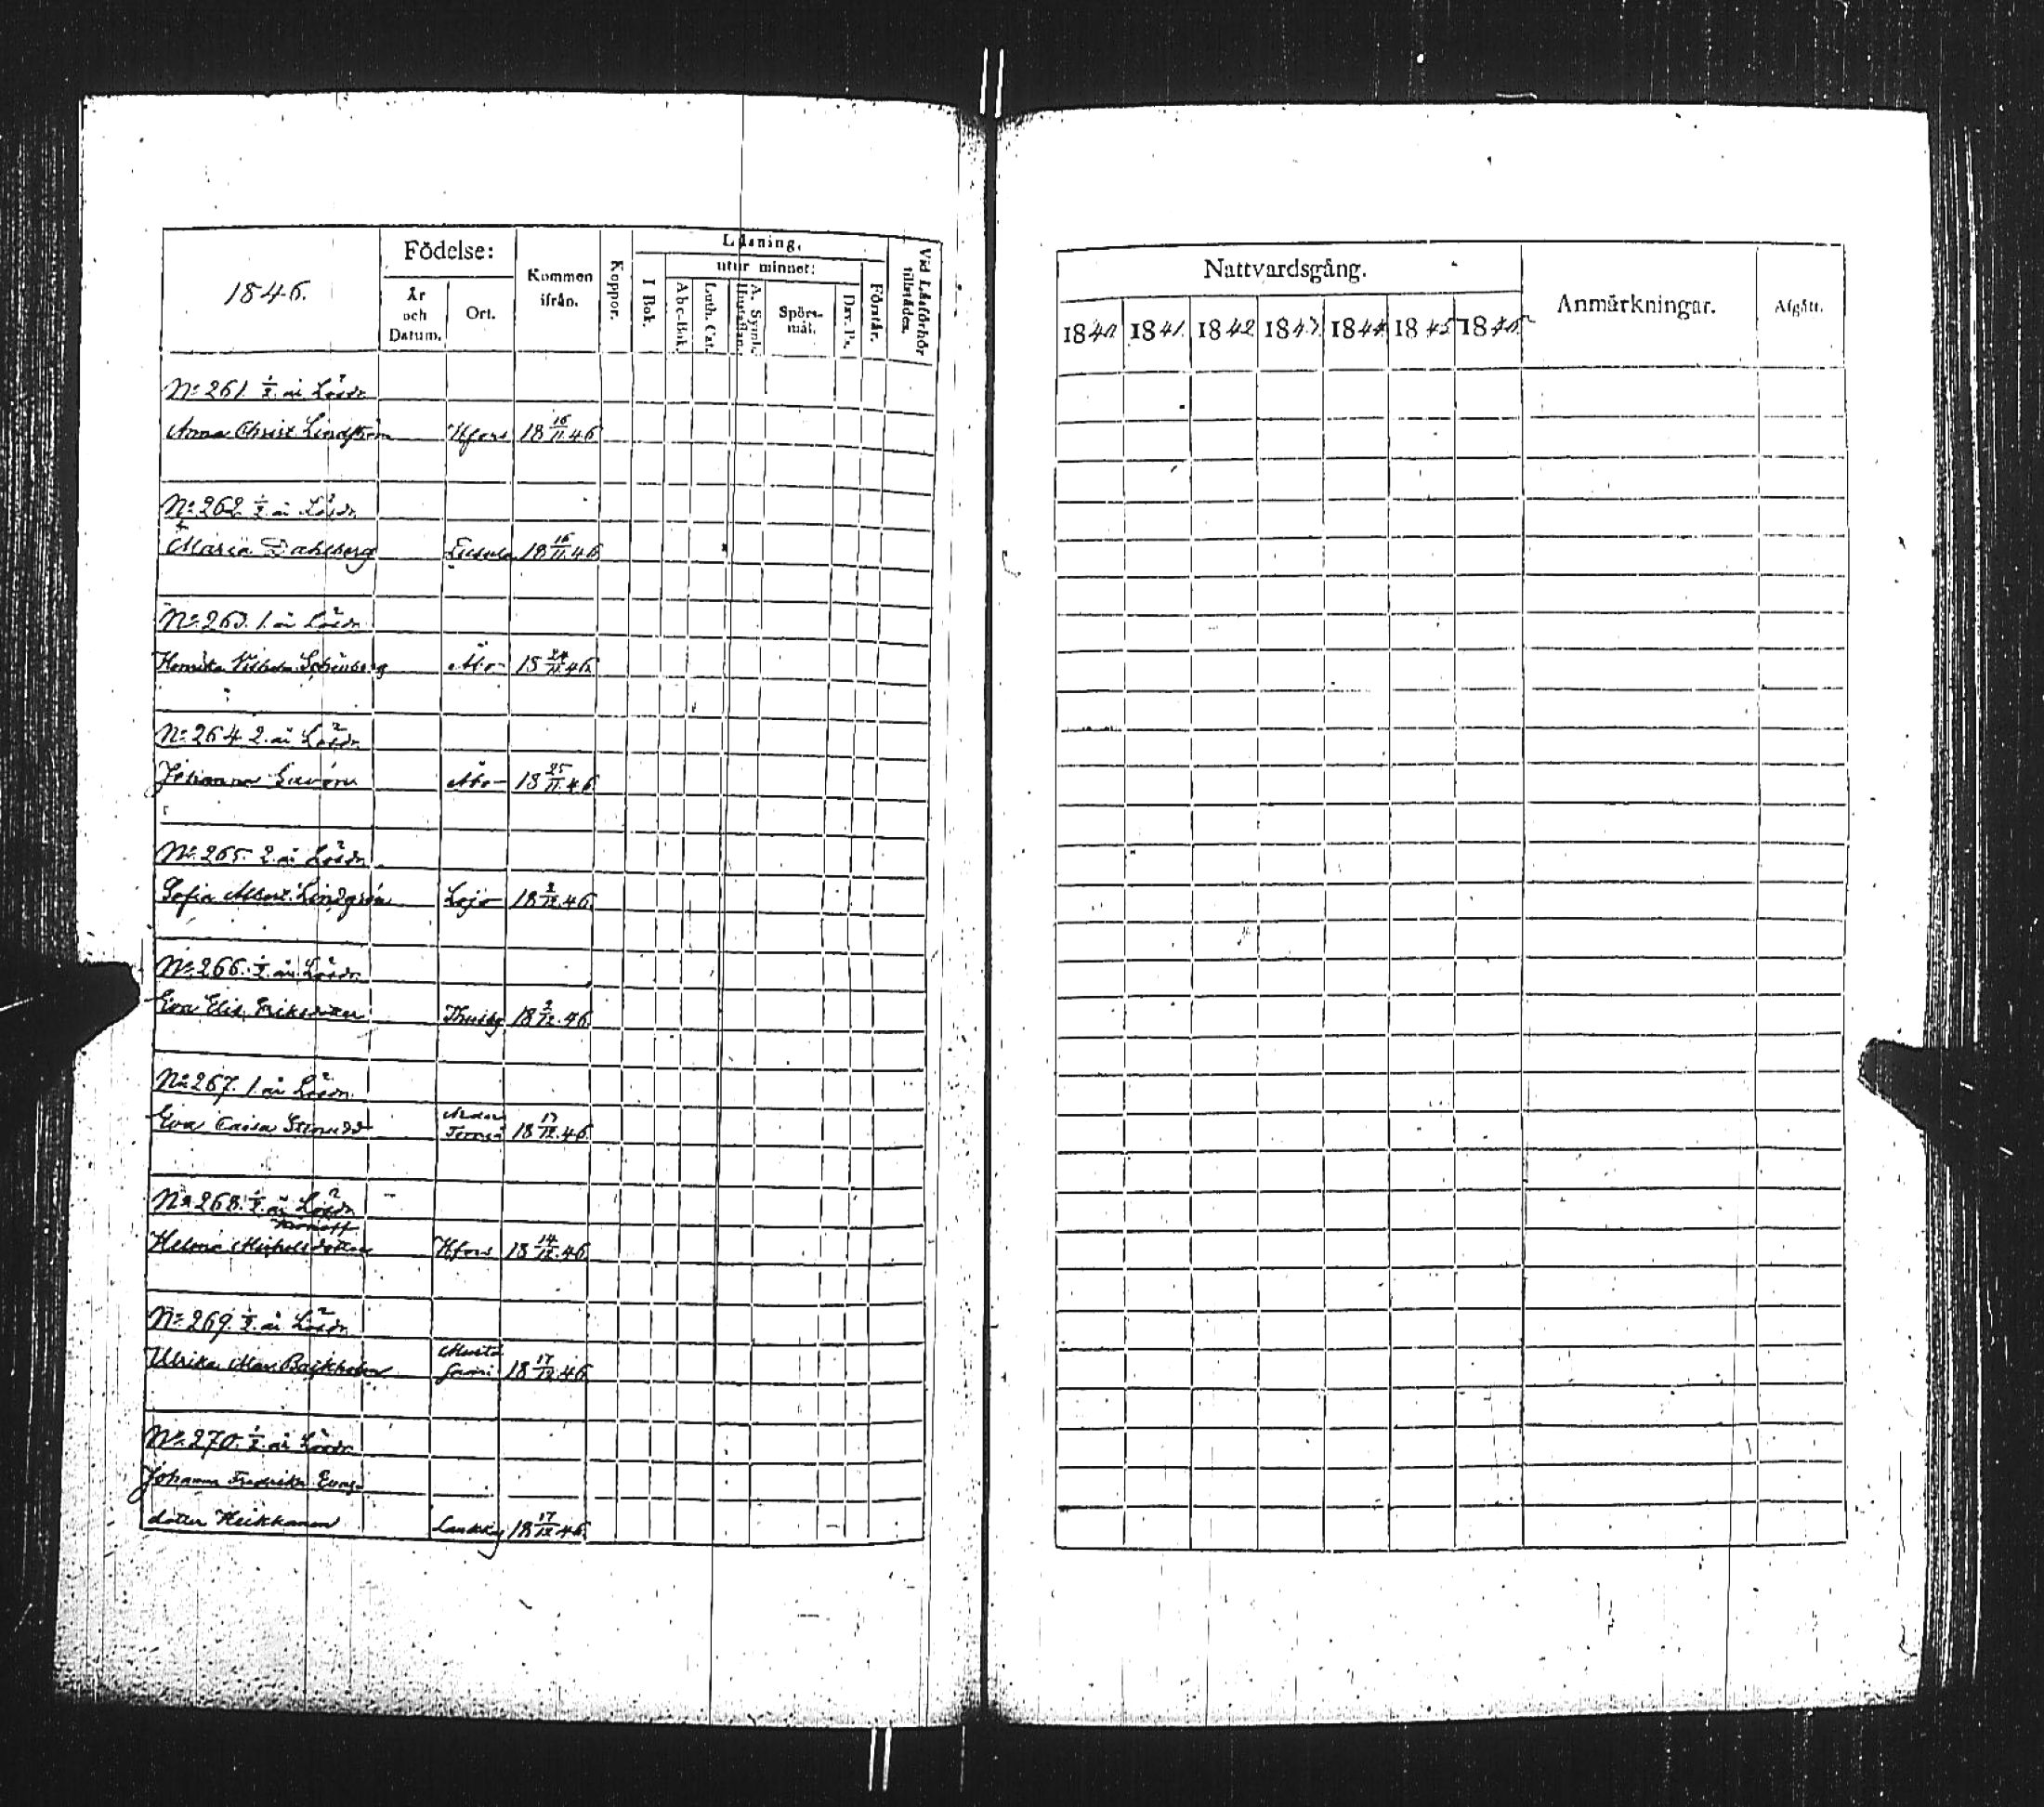 1846.
Födelse:
År och Datum.
Ort.
Kommen ifrån.
Koppor.
Läsning.
I Bok.
utur minnet:
Abc-Bok.
Luth. Cat.
A. Symb. Hustaflan.
Spörs-mål.
Dav. Ps.
Förstår.
Vid Läsförhör tillstädes.
No 261. 1/2 år Lösdr
Anna Christ. Lindström Hfors 18 16/11 46
No 262. 1/2 år Lösdr
Maria Dahlberg 18 16/11 46
No 263. 1 år Lösdr
Henrika Vilhelm. Åbo 18 24/11 46
No 264 2 år Lösdr
Johanna Åbo 18 25/11 46
No 265. 2 år Lösdr
Sofia Lindgrén Lojo 18 2/12 46.
No 266. 1/2 år Lösdr
Eva Elis. Eriksdotter Thusby 18 2/12 46
No 267. 1 år Lösdr
Eva Caisa 18 17/12 46
No 268. 1/2 år Lösdr
Helena Michelsdotter Hfors 18 14/12 46
No 269. 1/2 år Lösdr
Ulrika Mar. Mustasaari 18 17/12 46
No 270. 1/2 år Lösdr
Johanna Fredrika
dotter Heikkanen 18 17/12 46
Nattvardsgång.
Anmärkningar.
Afgått.
1840 1841. 1842 1843 1844 1845 1846